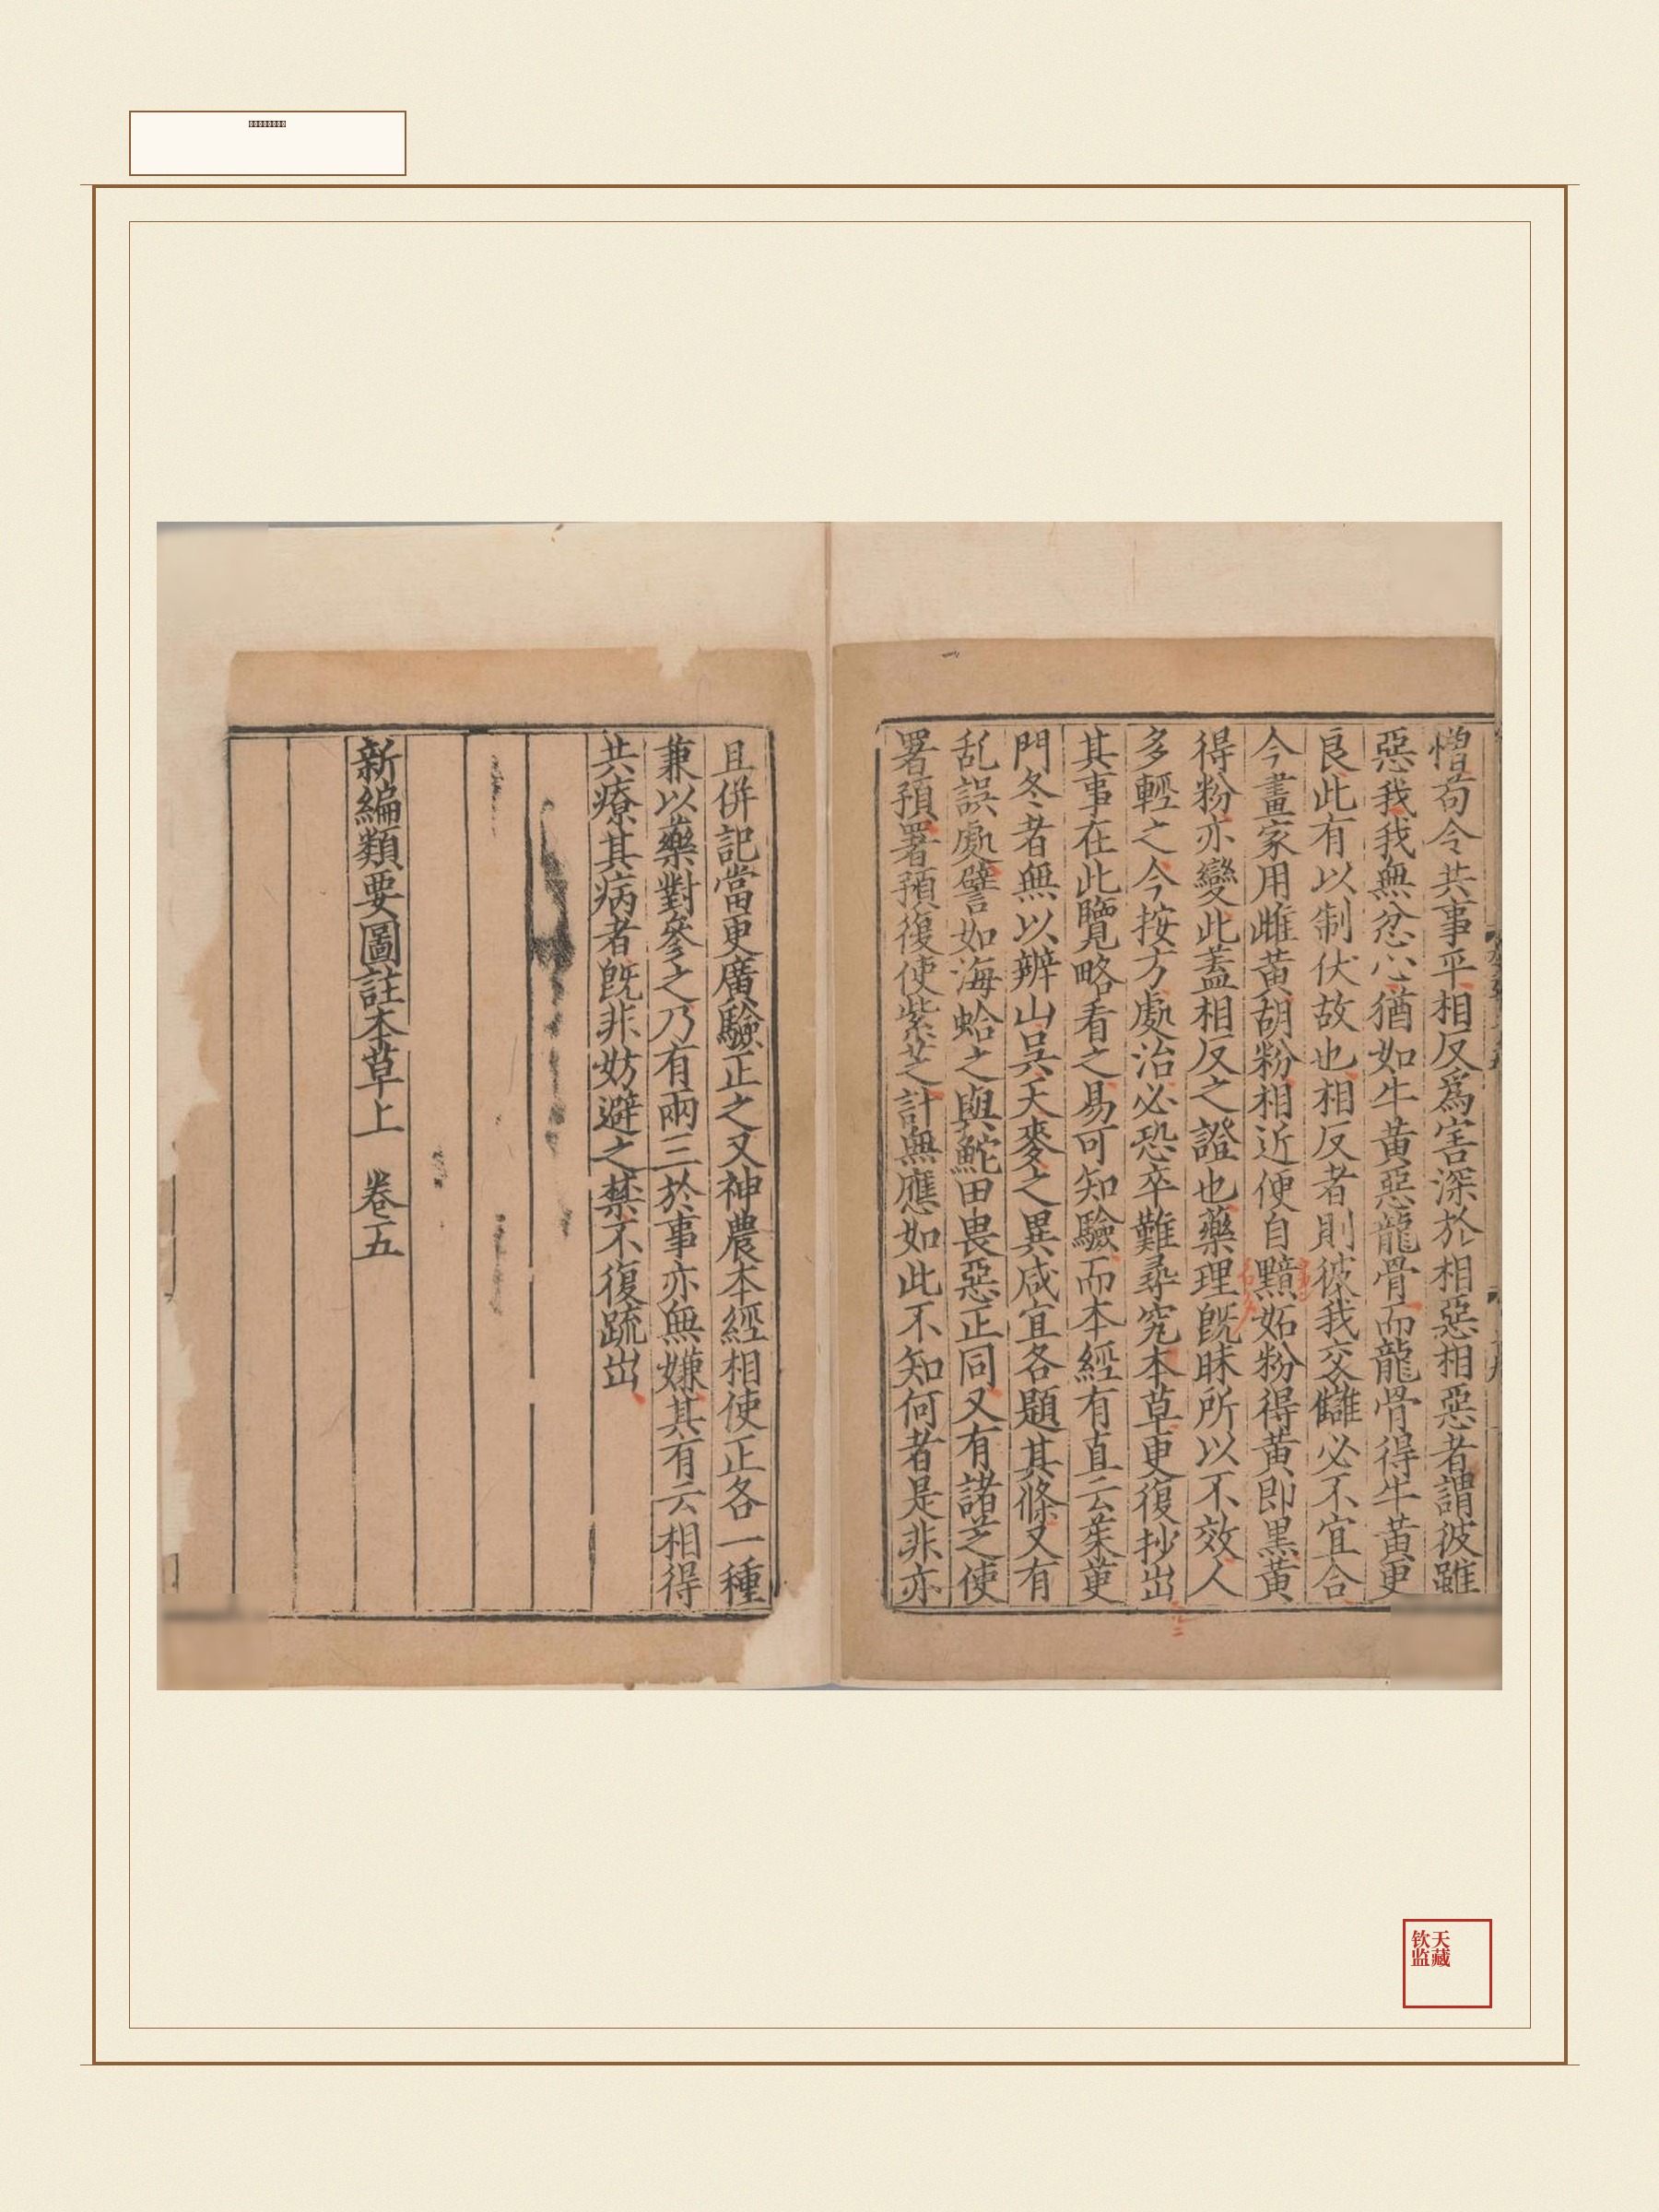 憎苟令共事平相反爲害深於相惡相惡者謂彼雖
惡我我無忿心猶如牛黃惡龍骨而龍骨得牛黃更
良此有以制伏故也相反者則彼我交讎必不宜合
今畫家用雌黃胡粉相近便自黯妬粉得黃即黑黃
得粉亦變此蓋相反之證也藥理旣昧所以不效人
多輕之今按方處治必恐卒難尋究本草更復抄出
其事在此覽略看之易可知驗而本經有直云茱萸
門冬者無以辨山吳天麥之異咸宜各題其條又有
乱誤處譬如海蛤之與鮀田畏惡正同又有諸芝使
署預署預復使紫芝計無應如此不知何者是非亦
且併記當更廣驗正之又神農本經相使正各一種
兼以藥對參之乃有兩三於事亦無嫌其有云相得
共療其病者旣非妨避之禁不復疏出
新編類要圖註本草上 卷五
天藏
钦监